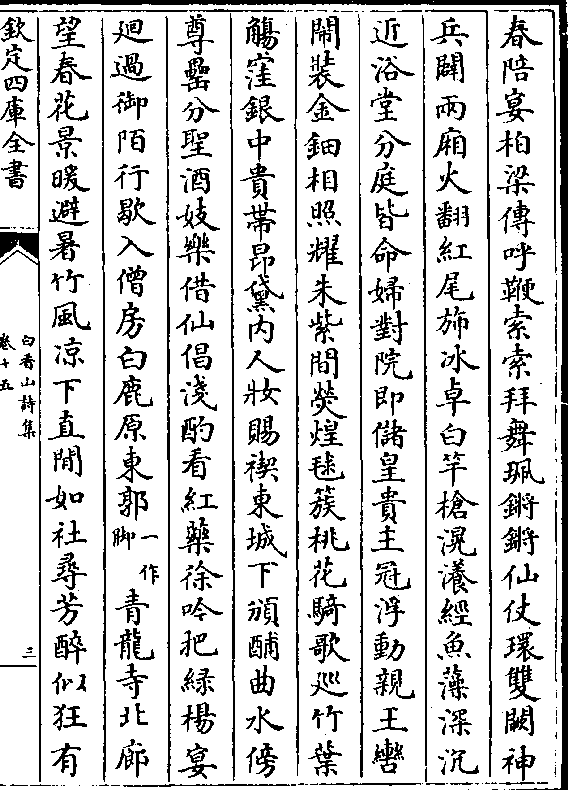 春陪宴柏梁傳呼鞭索索拜舞珮鏘鏘仙仗環雙闕神
兵闢兩廂火翻紅尾斾冰卓白竿槍滉瀁經魚藻深沉
近浴堂分庭皆命婦對院即儲皇貴主冠浮動親王轡
閙裝金鈿相照耀朱紫間熒煌毬簇桃花騎歌巡竹葉
觴窪銀中貴帶昂黛内人妝賜禊東城下頒酺曲水傍
尊罍分聖酒妓樂借仙倡淺酌看紅藥徐吟把緑楊宴
廻過御陌行歇入僧房白鹿原東郭一作脚青龍寺北廊
望春花景暖避暑竹風凉下直閒如社尋芳醉似狂有
欽定四庫全書
白香山詩集
卷十五
三